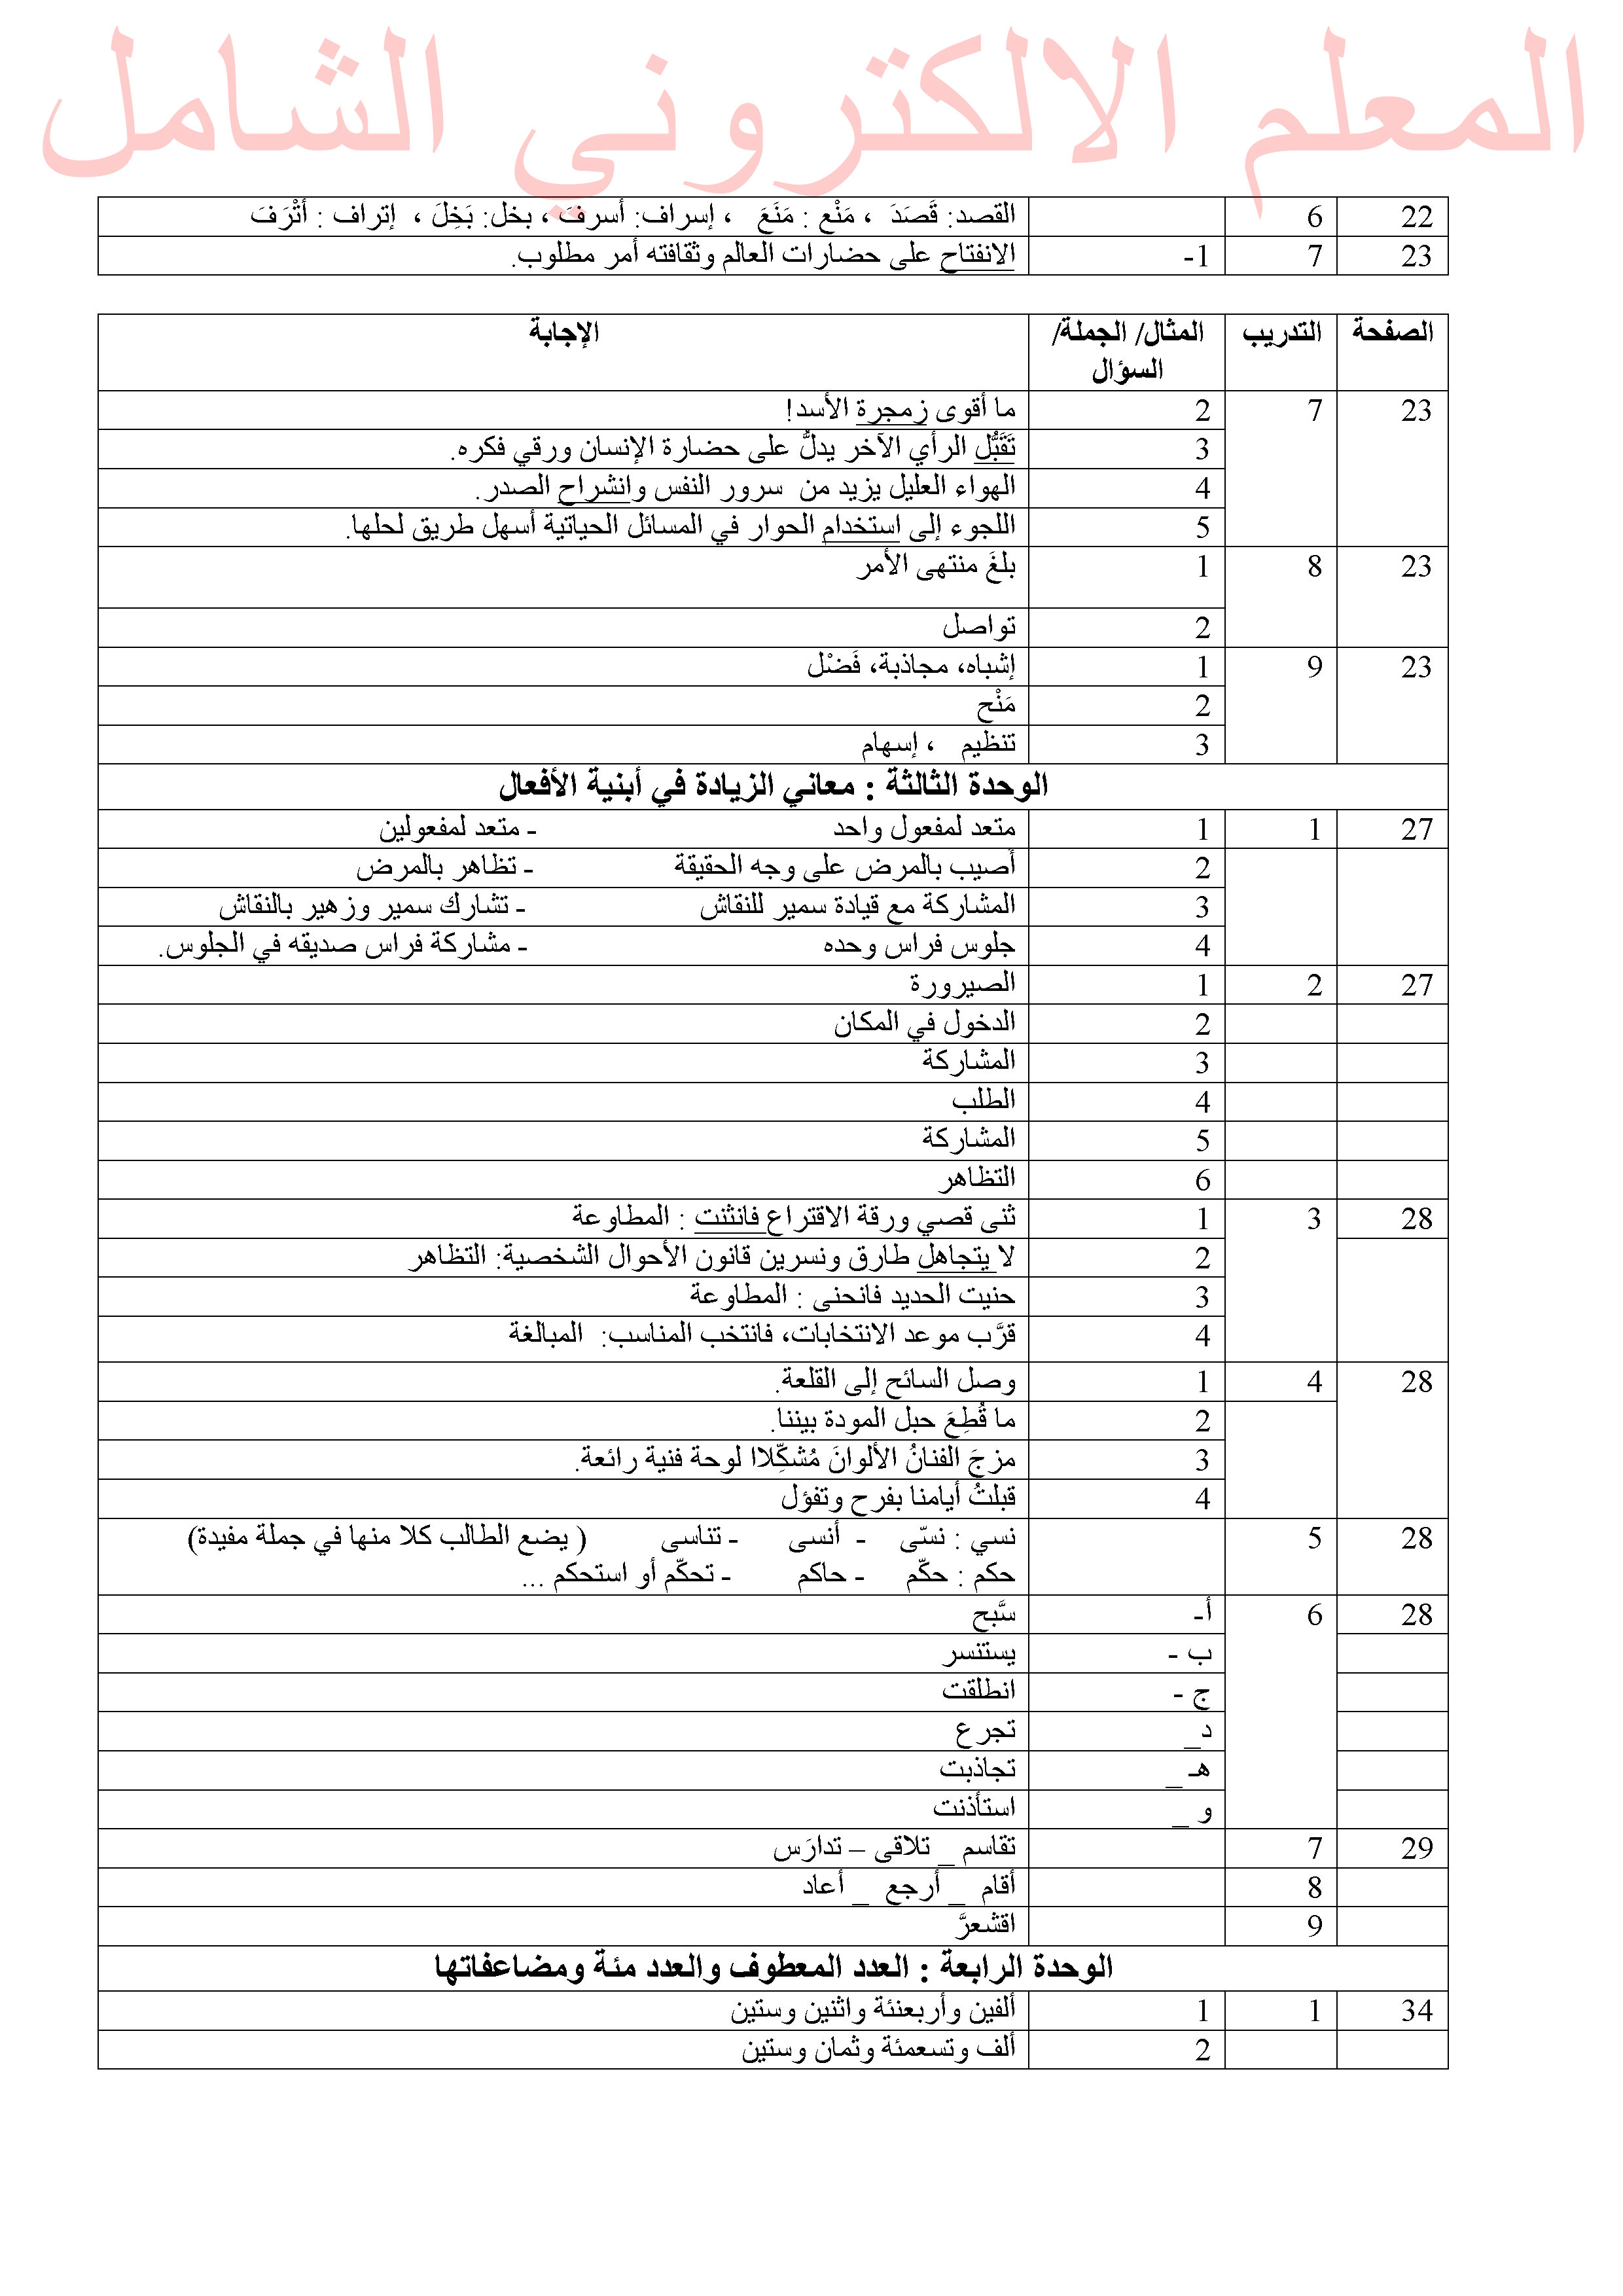 المعلم الالكتروني الشامل
22 6 القصد: قَصَدَ ، مَنْع : مَنَعَ ، إسراف: أسرفَ ، بخل: بَخِلَ ، إتراف : أتْرَفَ
23 7 1- الانفتاح على حضارات العالم وثقافته أمر مطلوب.
الصفحة التدريب المثال/ الجملة/ الإجابة
السؤال
23 7 2 ما أقوى زمجرة الأسد!
3 تَقَبُّل الرأي الآخر يدلُّ على حضارة الإنسان ورقي فكره.
4 الهواء العليل يزيد من سرور النفس وانشراح الصدر.
5 اللجوء إلى استخدام الحوار في المسائل الحياتية أسهل طريق لحلها.
23 8 1 بلغَ منتهى الأمر
2 تواصل
23 9 1 إشباه، مجاذبة، فَضْل
2 مَنْح
3 تنظيم ، إسهام
الوحدة الثالثة : معاني الزيادة في أبنية الأفعال
27 1 1 متعد لمفعول واحد - متعد لمفعولين
2 أصيب بالمرض على وجه الحقيقة - تظاهر بالمرض
3 المشاركة مع قيادة سمير للنقاش - تشارك سمير وزهير بالنقاش
4 جلوس فراس وحده - مشاركة فراس صديقه في الجلوس.
27 2 1 الصيرورة
2 الدخول في المكان
3 المشاركة
4 الطلب
5 المشاركة
6 التظاهر
28 3 1 ثنى قصي ورقة الاقتراع فانثنت : المطاوعة
2 لا يتجاهل طارق ونسرين قانون الأحوال الشخصية: التظاهر
3 حنيت الحديد فانحنى : المطاوعة
4 قرَّب موعد الانتخابات، فانتخب المناسب: المبالغة
28 4 1 وصل السائح إلى القلعة.
2 ما قُطِعَ حبل المودة بيننا.
3 مزجَ الفنانُ الألوانَ مُشكِّلاا لوحة فنية رائعة.
4 قبلتُ أيامنا بفرح وتفؤل
28 5 نسي : نسّى - أنسى - تناسى ( يضع الطالب كلا منها في جملة مفيدة)
حكم : حكّم - حاكم - تحكّم أو استحكم ...
28 6 أ- سَّبح
ب - يستنسر
ج - انطلقت
د_ تجرع
هـ _ تجاذبت
و _ استأذنت
29 7 تقاسم _ تلاقى – تدارَس
8 أقام _ أرجع _ أعاد
9 اقشعرَّ
الوحدة الرابعة : العدد المعطوف والعدد مئة ومضاعفاتها
34 1 1 ألفين وأربعنئة واثنين وستين
2 ألف وتسعمئة وثمان وستين